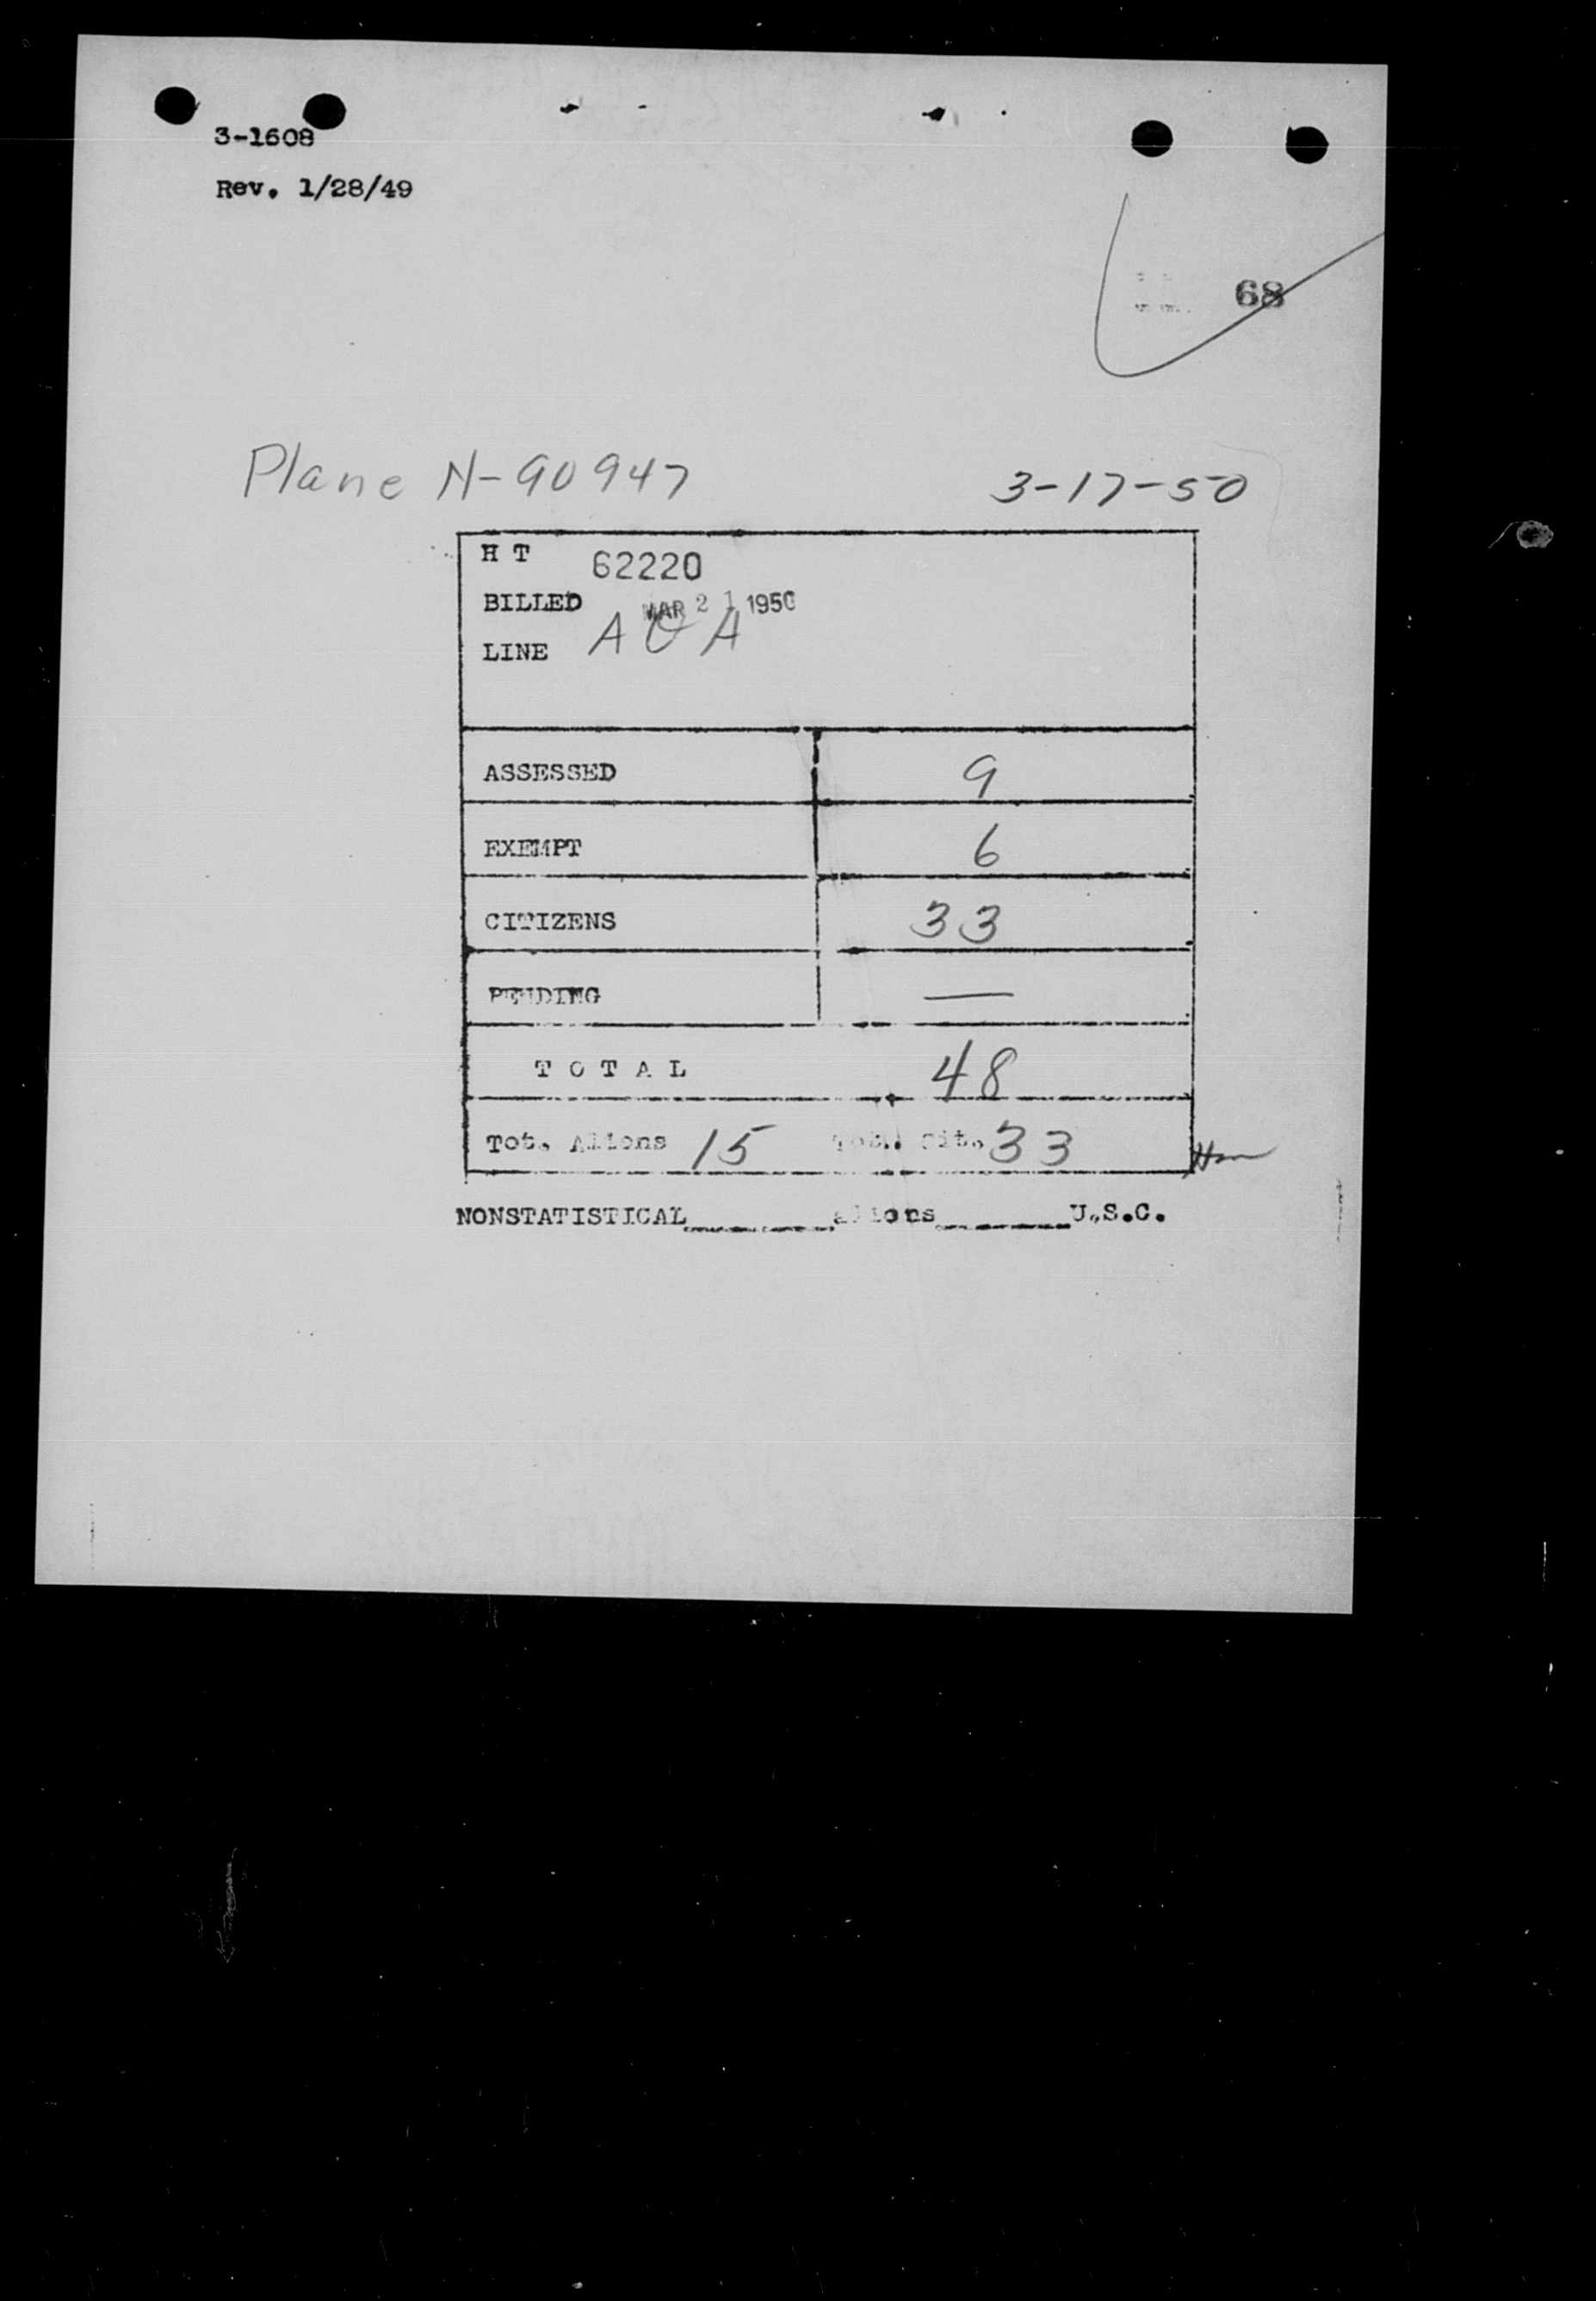 3-1608
Rev. 1/28/49
68
Plane N-90947 3-17-50
H T 62220
BILLED MAR 21 1950
LINE A O A
ASSESSED 9
EXEMPT 6
CITIZENS 33
PENDING —
T O T A L 48
Tot. Aliens 15 Tot. Cit. 33
NONSTATISTICAL________aliens________U.S.C.